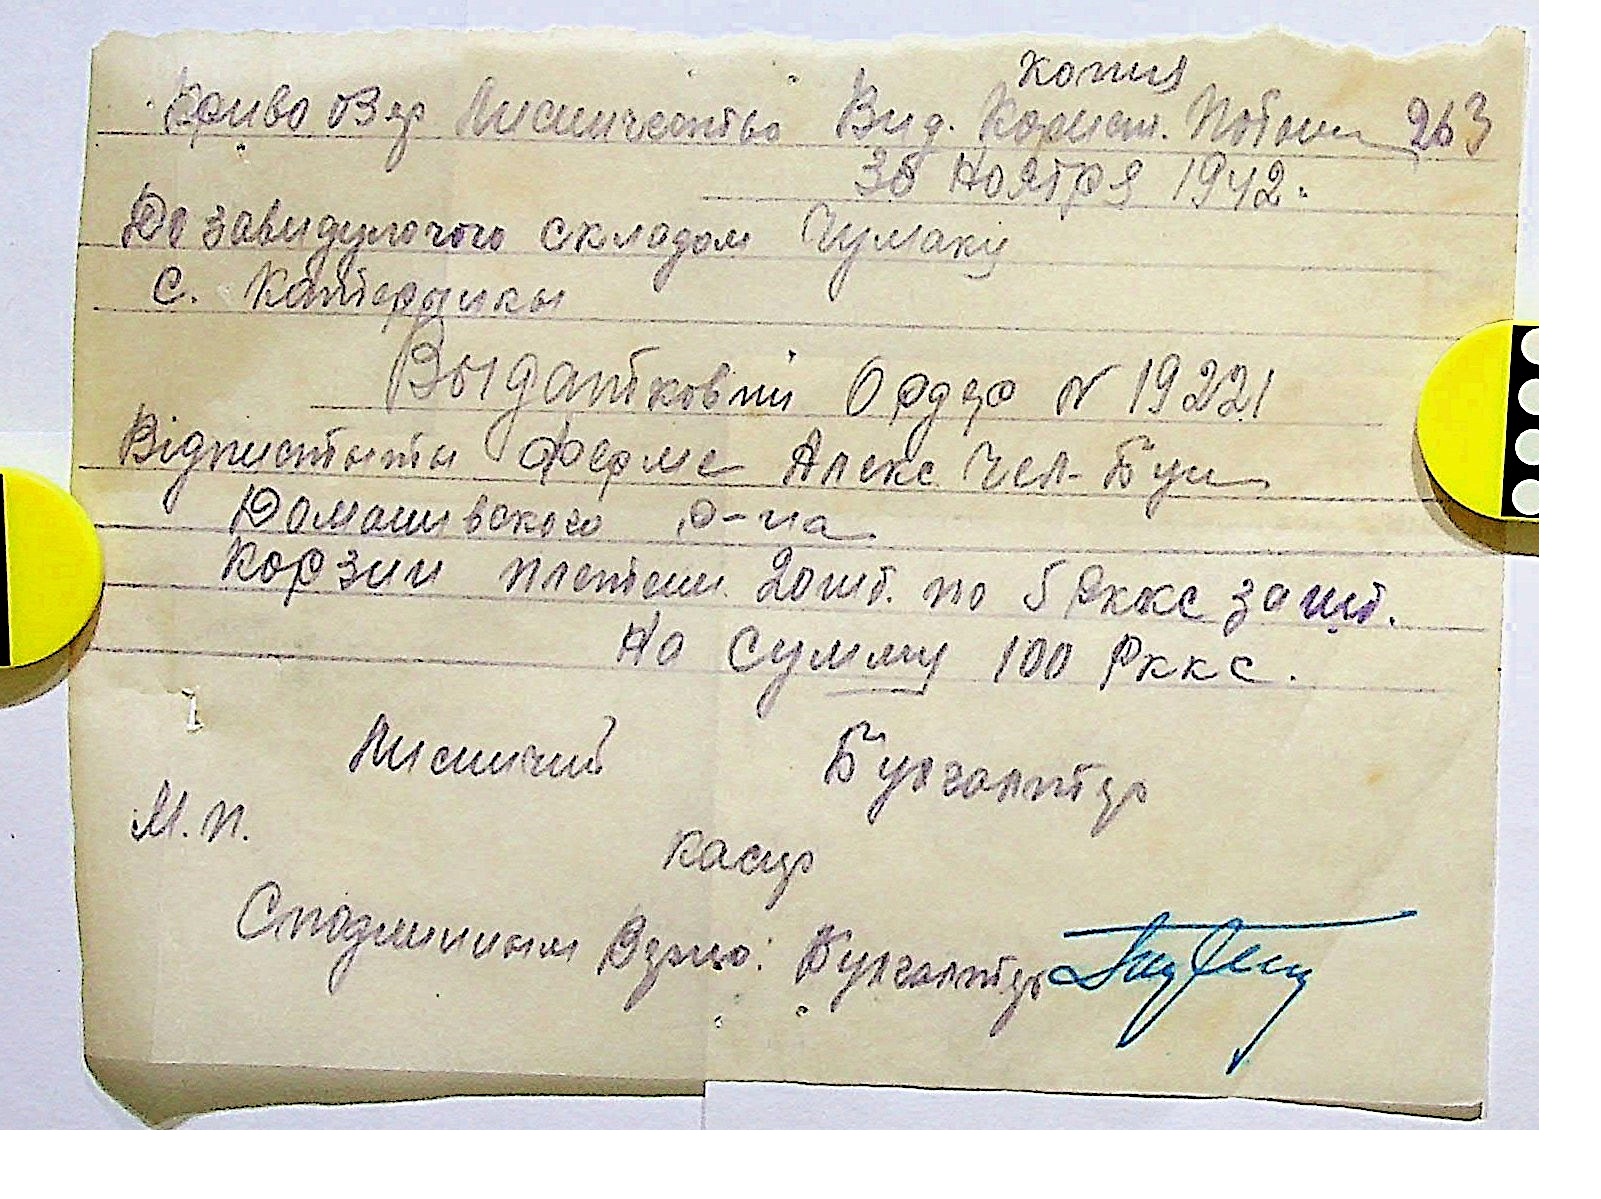 копия
Криво Озер Лисничество Вид. Корист. 263
30 ноября 1942.
До завидуючого складом Чумаку
с. Катеринки
Выдатковий Ордер N 19221
Відпистыты ферме Алекс Чел-Буш
Домашивского р-на
Корзин плетен. 20 шт. по 5 Рккс за шт.
На сумму 100 Рккс.
Лисничий Бухгалтер
М. п.
касир
Сподлинным Верно: Бухгалтер